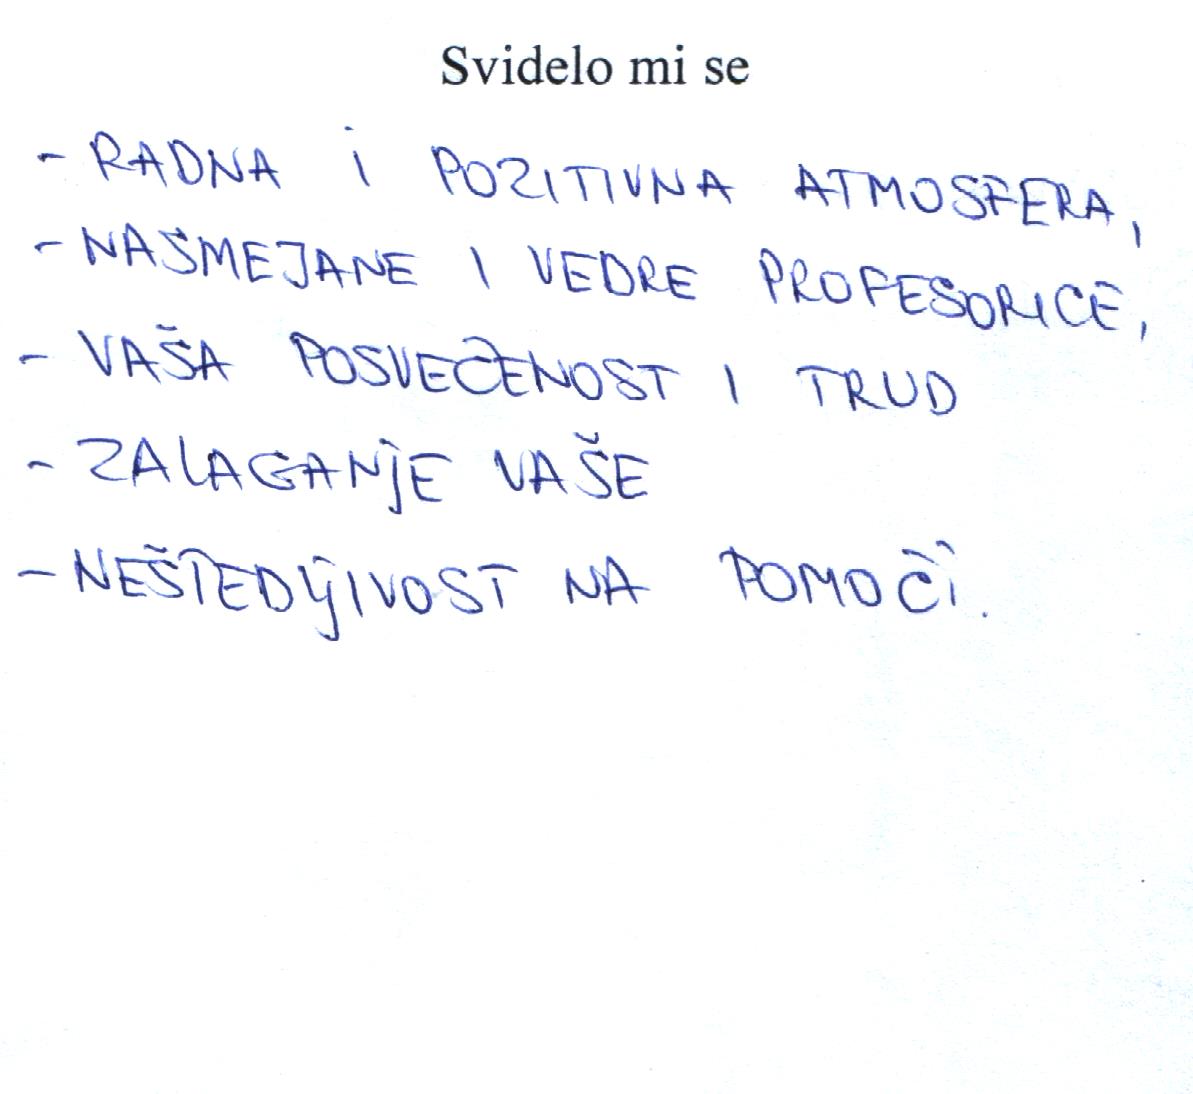 Svidelo mi se
- RADNA i POZITIVNA ATMOSFERA,
- NASMEJANE I VEDRE PROFESORICE,
- VAŠA POSVEĆENOST I TRUD
- ZALAGANjE VAŠE
- NEŠTEDLjIVOST NA POMOĆI.